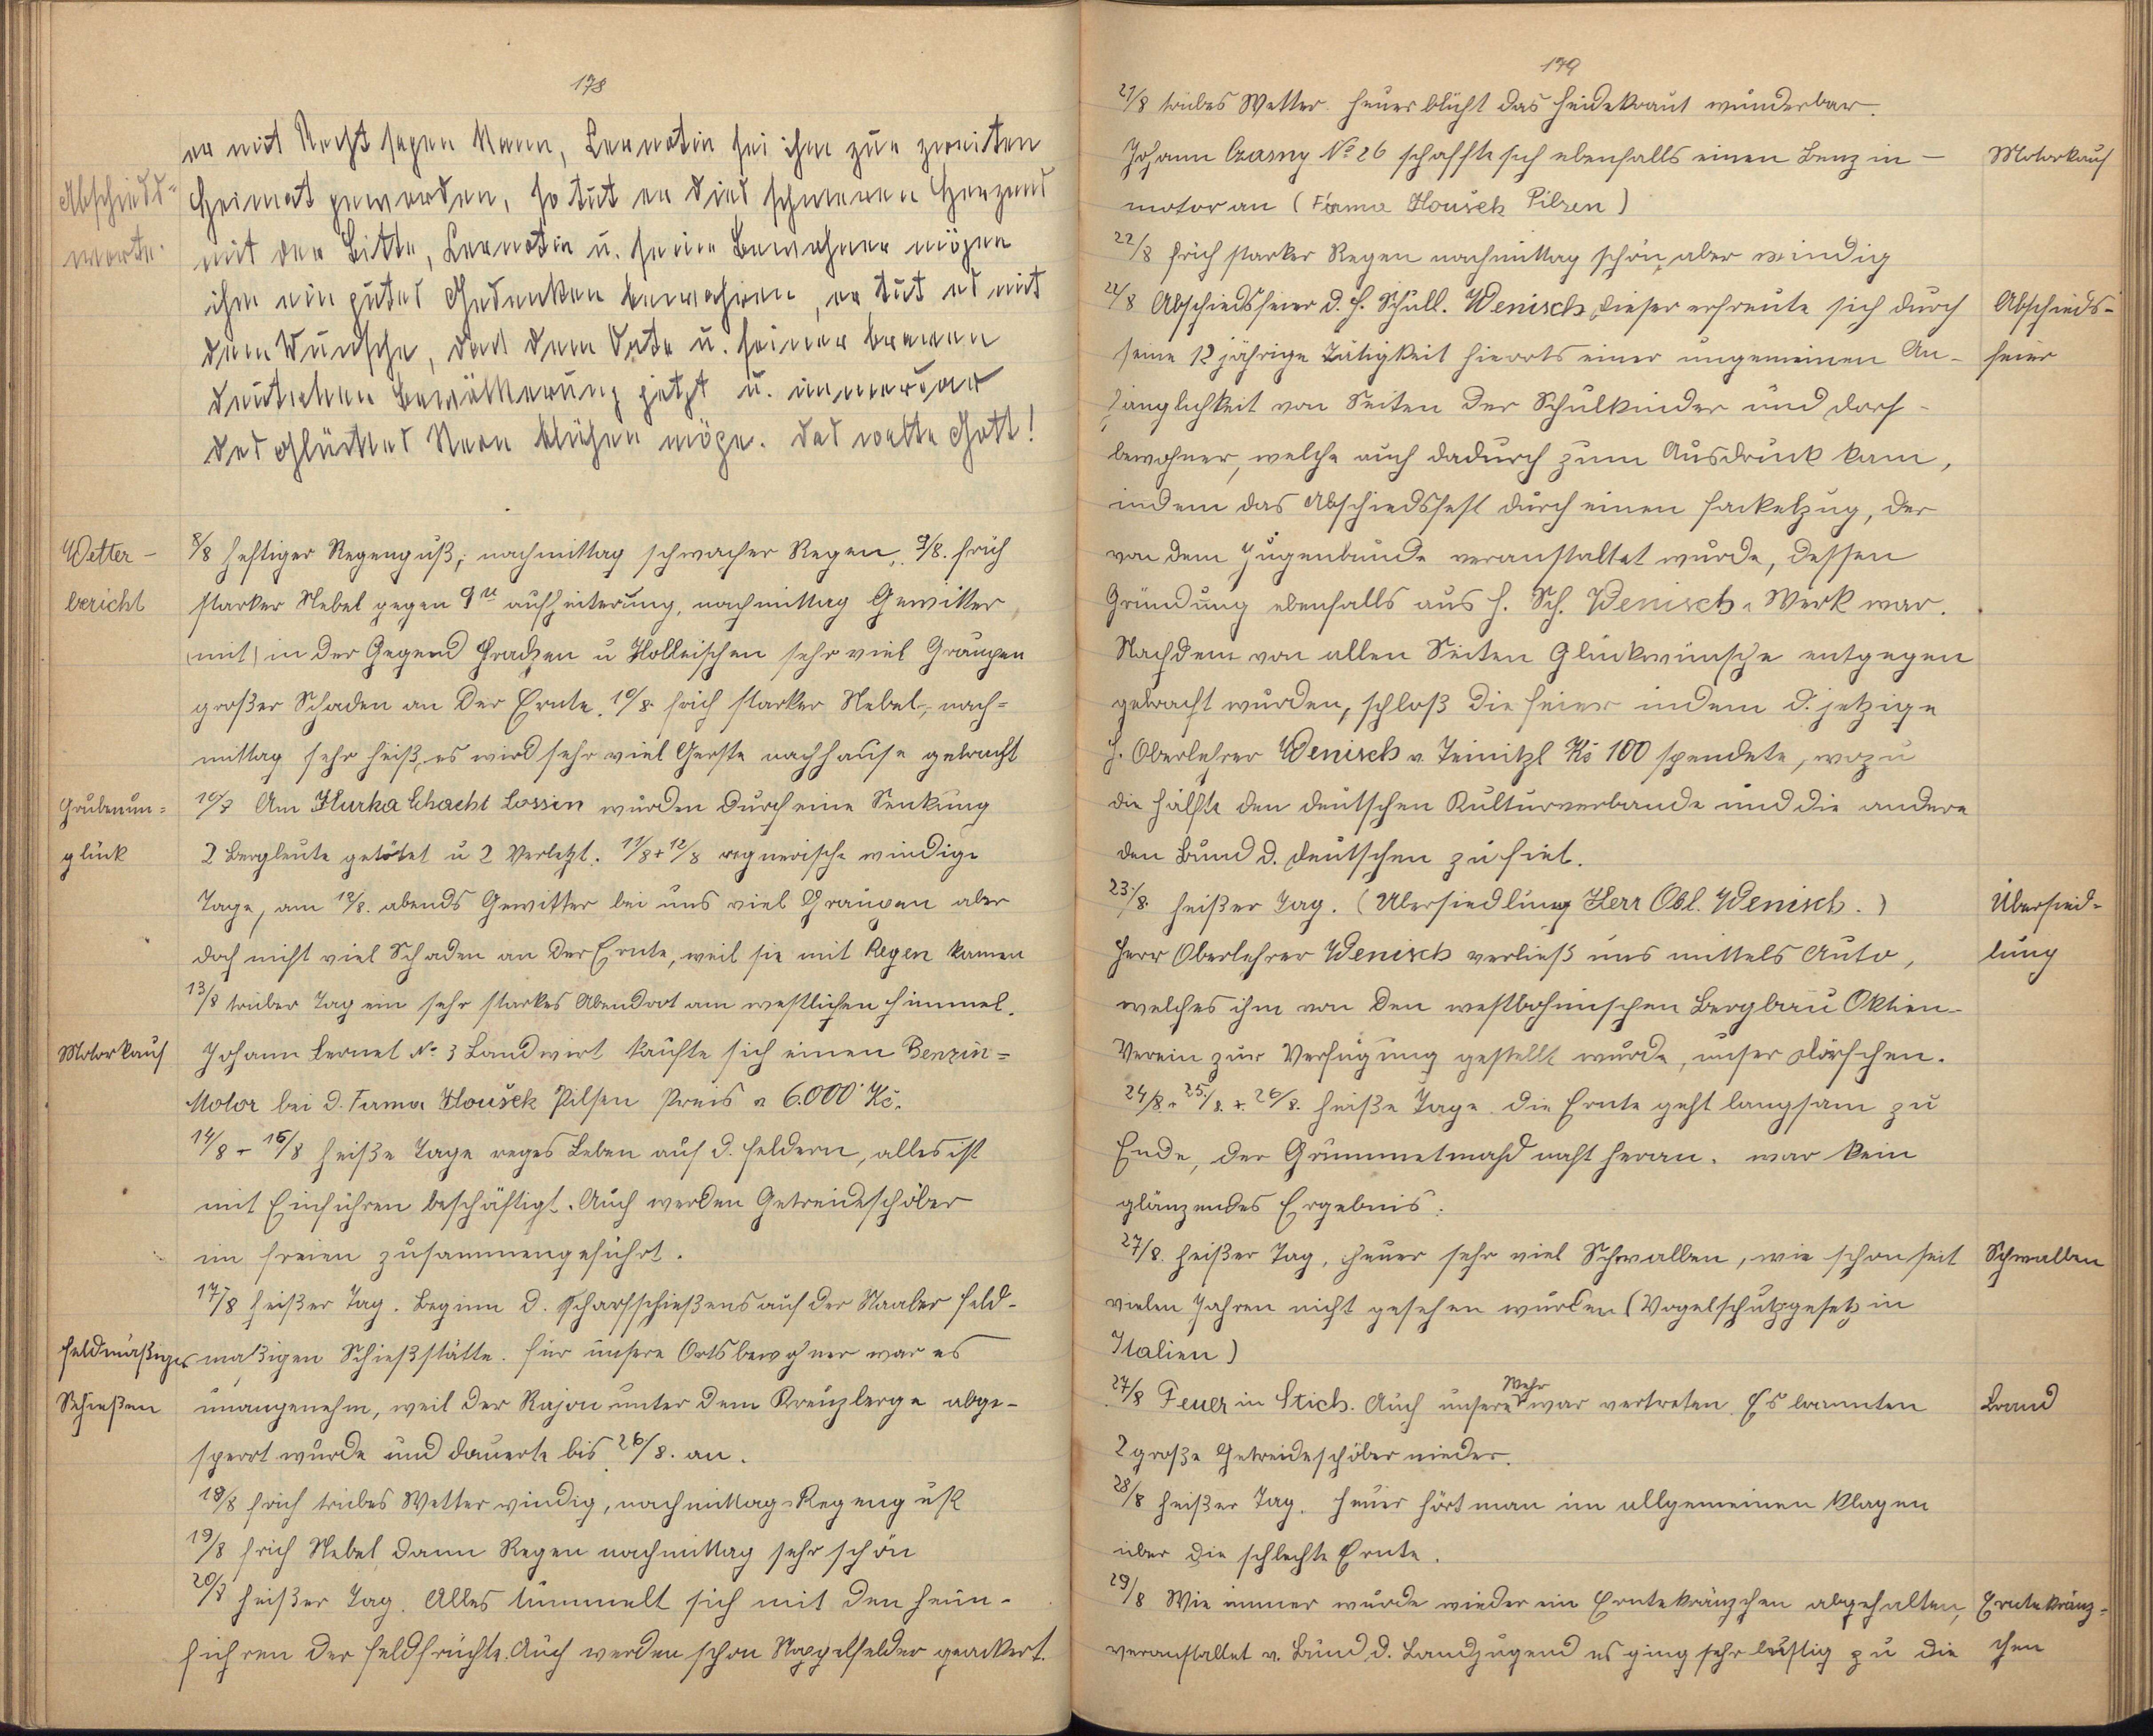 178
Abschieds-
worte.
er mit Recht sagen kann, Lernotin sei ihm zur zweiten
Heimat geworden, so tut er dies schweren Herzens
mit der Bitte, Lernotin u. seine Bewohner mögen
ihm ein gutes Gedenken bewahren, er tut es mit
dem Wunsche, das dem Orte u. seiner braven
deutschen Bevölkerung jetzt u. immerdar
des Glückes Stern blühen möge. Das walte Gott!
Wetter-
bericht
8/8 heftiger Regenguß, nachmittag schwacher Regen, 9/8. früh
starker Nebel gegen 9 u aufheiterung, nachmittag Gewitter
(mit) in der Gegend Hradzen u Holleischen sehr viel Graupen
großer Schaden an der Ernte. 10/8. früh starker Nebel, nach=
mittag sehr heiß, es wird sehr viel Gerste nachhause gebracht
Grubenun=
glück
10/8 Am Hurka Schacht Lossin wurden durch eine Senkung
2 Bergleute getötet u 2 Verletzt. 11/8 + 12/8 regnerische windige
Tage, am 12/8. abends Gewitter bei uns viel Graupen aber
doch nicht viel Schaden an der Ernte, weil sie mit Regen kamen
13/8 trüber Tag ein sehr starkes Abendrot am westlichen Himmel.
Motorkauf
Johann Lernet No 3 Landwirt kaufte sich einen Benzin=
Motor bei d. Firma Houšek Pilsen Preis a 6.000 Kč.
14/8 - 16/8 heiße Tage reges Leben auf d. Feldern, alles ist
mit Einführen beschäftigt. Auch werden Getreideschöber
im freien zusammengeführt.
17/8 heißer Tag. Beginn d. Scharfschießens auf der Staaber feld-
feldmäßiges
Schießen
mäßigen Schießstätte. Für unsere Ortsbewohner war es
unangenehm, weil der Rajon unter dem Kreuzberge abge-
sperrt wurde und dauerte bis 26/8. an.
18/8 früh trübes Wetter windig, nachmittag Regenguß
19/8 früh Nebel dann Regen nachmittag sehr schön
20/8 heißer Tag. Alles tummelt sich mit den heim-
führen der Feldfrüchte. Auch werden schon Stoppelfelder geackert.
179
21/8 trübes Wetter. Heuer blüht das Heidekraut wunderbar.
Johann Czarny No 26 schaffte sich ebenfalls einen Benzin-
Motorkauf
motor an (Firma Houšek Pilsen)
22/8 früh starker Regen nachmittag schön, aber windig
22/8 Abschiedsfeier d. H. Schull. Wenisch, dieser erfreute sich durch
Abschieds-
feier
seine 12 jährige Tätigkeit hierorts einer ungemeinen An-
hänglichkeit von Seiten der Schulkinder und Dorf-
bewohner, welche auch dadurch zum Ausdruck kam,
indem das Abschiedsfest durch einen Fackelzug, der
von dem Jugenbunde veranstaltet wurde, dessen
Gründung ebenfalls aus H. Sch. Wenisch's Werk war.
Nachdem von allen Seiten Glückwünsche entgegen
gebracht wurden, schloß die Feier indem d. jetzige
H. Oberlehrer Wenisch v. Teinitzl Kč 100 spendete, wozu
die Hälfte den deutschen Kulturverbande und die andere
den Bund d. Deutschen zu fiel.
23./8. heißer Tag. (Ubersiedlung Herr Obl. Wenisch.)
Übersied-
lung
Herr Oberlehrer Wenisch verließ uns mittels Auto,
welches ihm von den westböhmischen Bergbau Aktien-
Verein zur Verfügung gestellt wurde, unser Dörfchen.
24/8. 25./8. + 26/8. heiße Tage. Die Ernte geht langsam zu
Ende, der Grummetmahd naht heran. war kein
glänzendes Ergebnis.
27/8. heißer Tag, heuer sehr viel Schwalben, wie schon seit
Schwalben
vielen Jahren nicht gesehen wurden (Vogelschutzgesetz in
Italien)
27/8 Feuer in Stich. Auch unsere Wehr war vertreten. Es brannten
Brand
2 große Getreideschöber nieder.
28/8 heißer Tag. Heuer hört man im allgemeinen Klagen
über die schlechte Ernte.
29/8 Wie immer wurde wieder ein Erntekränzchen abgehalten,
Erntekränz-
chen
veranstaltet v. Bund d. Landjugend es ging sehr lustig zu die